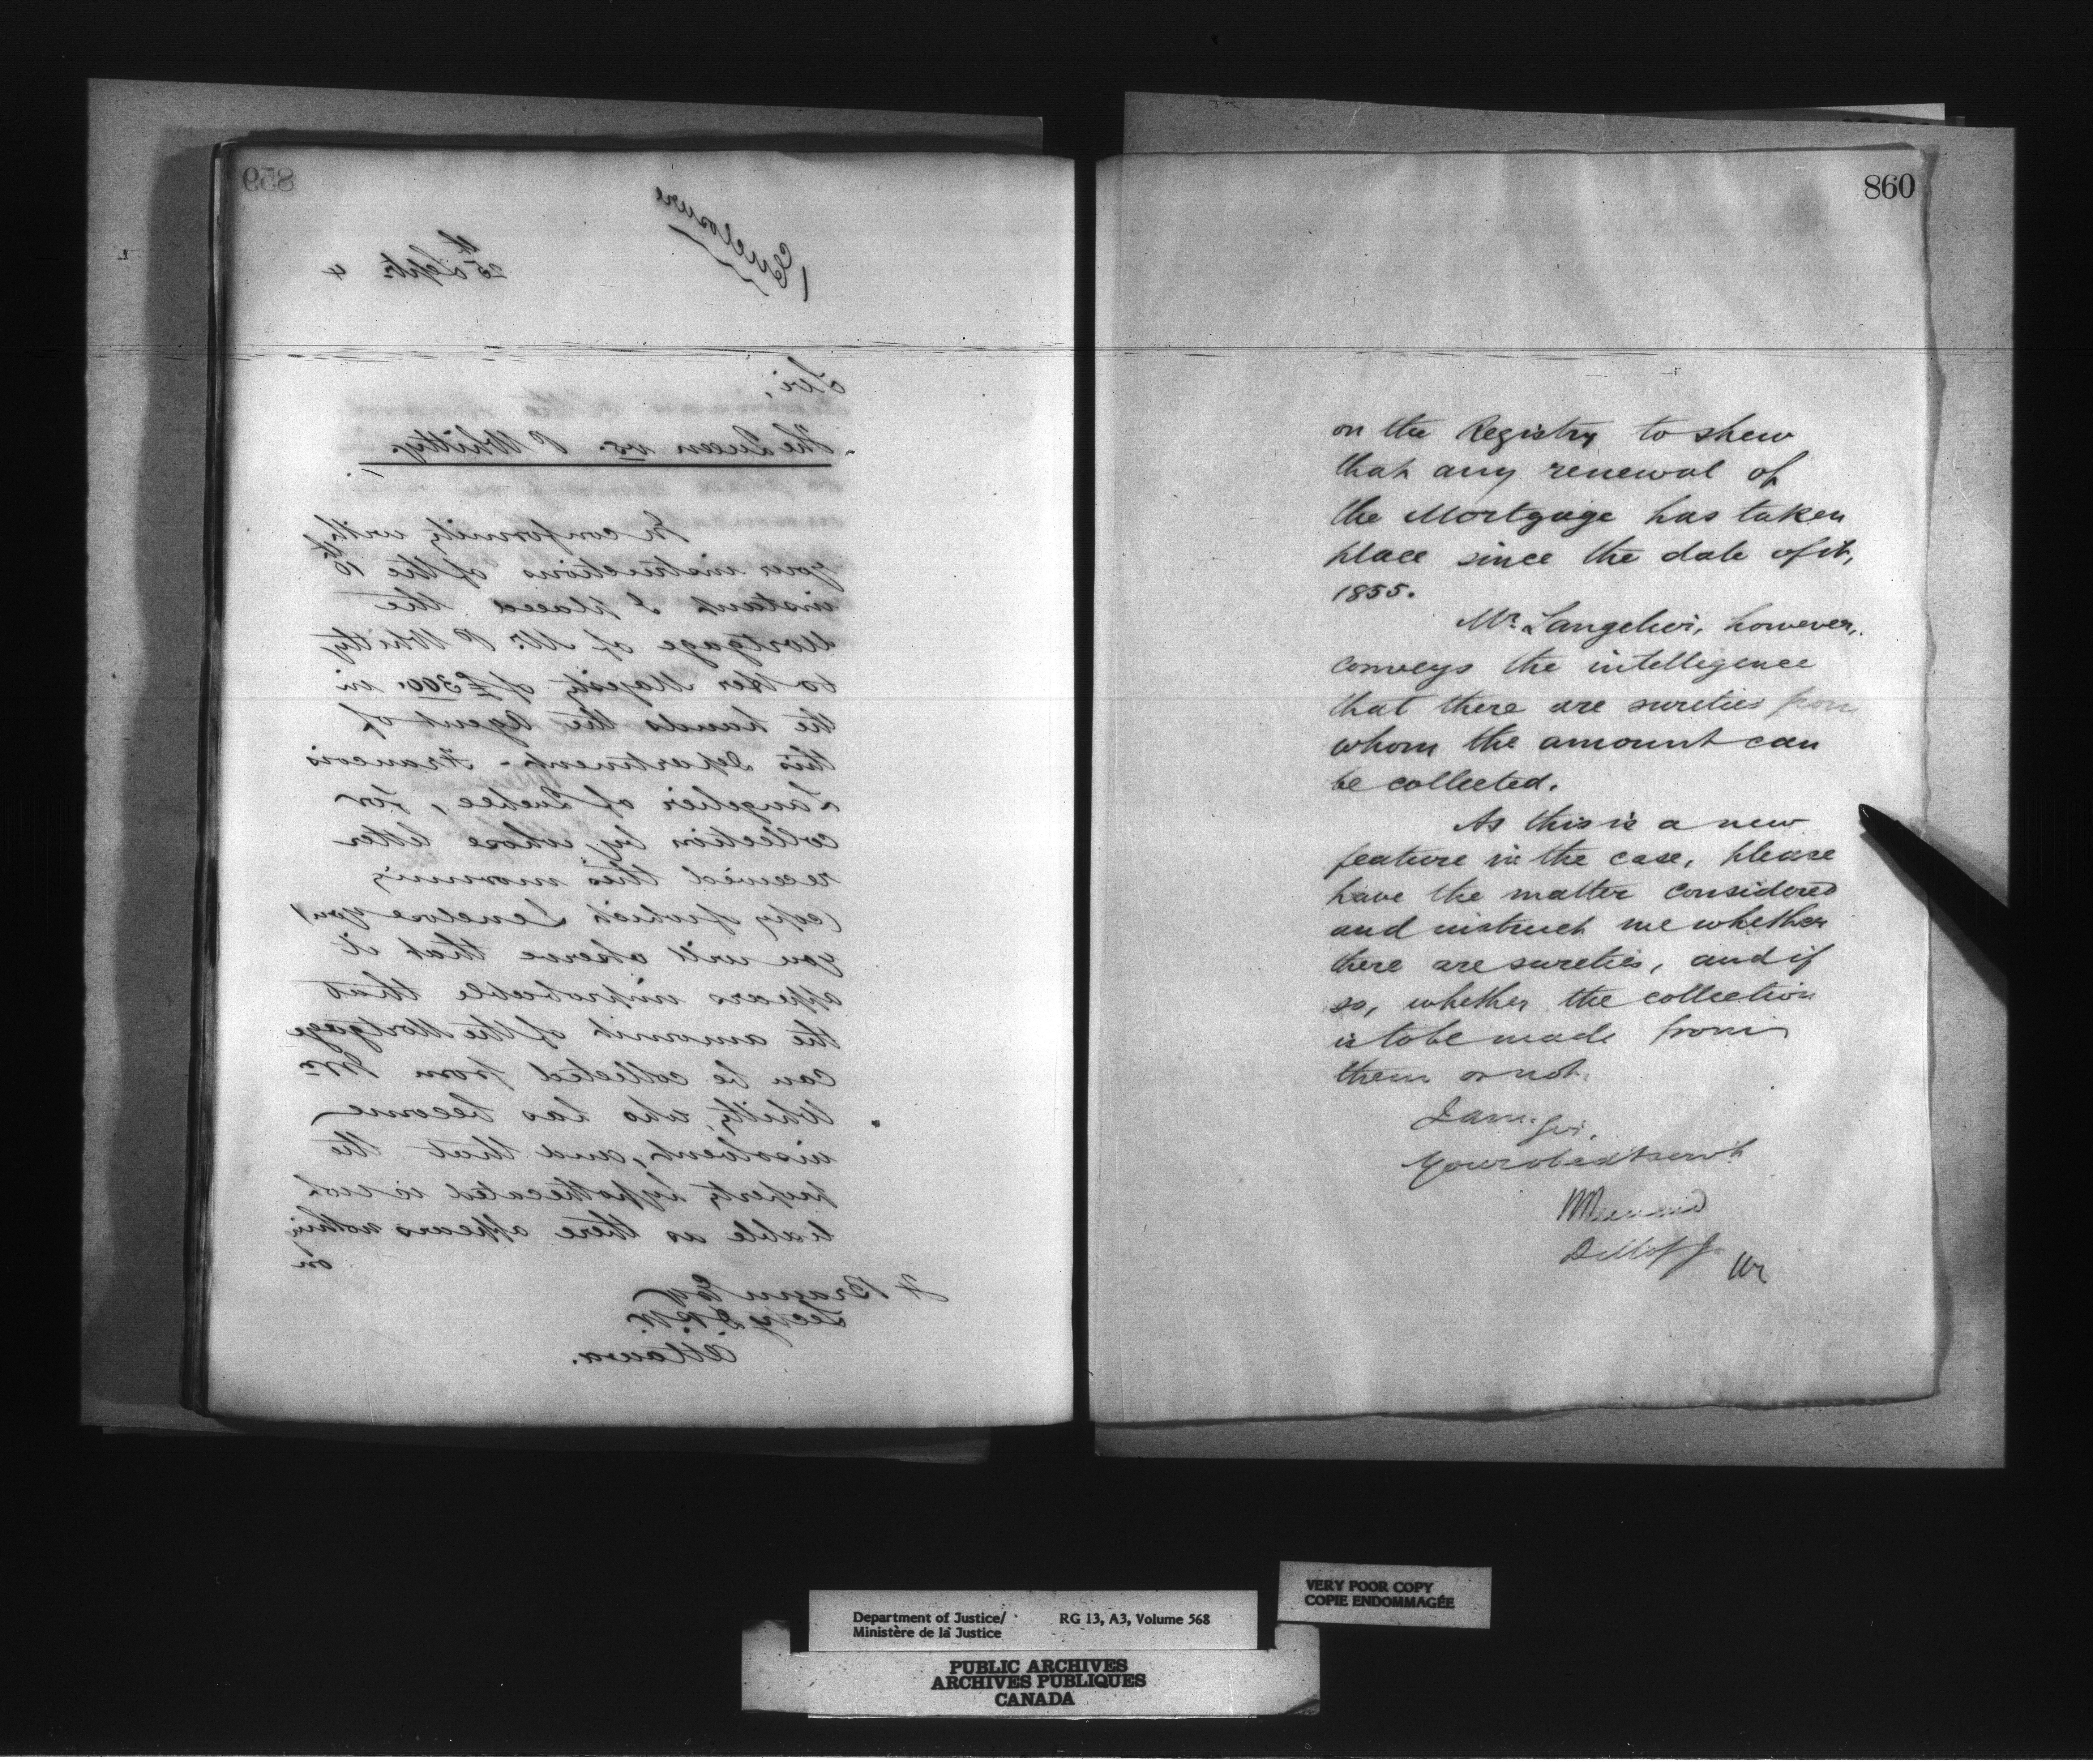 859
(Enclosure)
25th Septr 4
Sir,
The Queen vs. P Whitty.
In conformity with
your instructions of the 16th
instant I placed the
Mortgage of Mr. P Whitty
to Her Majesty of £300. in
the hands the Agent of
this Department - Francois
Langelier of Quebec, for
collection by whose letter
received this morning
(copy of which I enclose you)
you will observe that it
appears improbable that
the amount of the Mortgage
can be collected from Mr
Whitty, who has become
insolvent, and that the
property hypothecated is not
liable as there appears nothing
on
F Braun Esq
Secy D.P.W.
Ottawa.
860
on the Registry to shew
that any renewal of
the Mortgage has taken
place since the date of it,
1855.
Mr Langelier, however,
conveys the intelligence
that there are sureties from
whom the amount can
be collected.
As this is a new
feature in the case, please
have the matter considered
and instruct me whether
there are sureties, and if
so, whether the collection
is to be made from
them or not.
I am, Sir,
Your obedt servt
Department of Justice/
Ministère de la Justice
RG 13, A3, Volume 568
VERY POOR COPY
COPIE ENDOMMAGÉE
PUBLIC ARCHIVES
ARCHIVES PUBLIQUES
CANADA